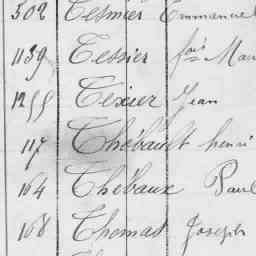 502 Tesnier Emmanuel
1139 Tessier
1255 Texier Jean
117 Thébault henri
164 Thébaux Paul
168 Thomas Joseph